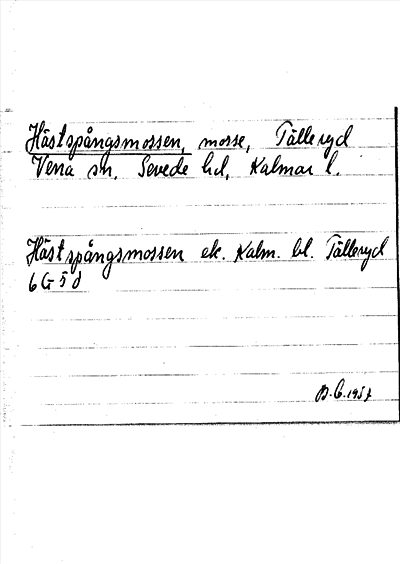 Hästspångsmossen, mosse, Tälleryd
Vena sn, Sevede hd, Kalmar l.
Hästspångsmossen ek. Kalm. bl. Tälleryd
6G5d
B.G. 1957